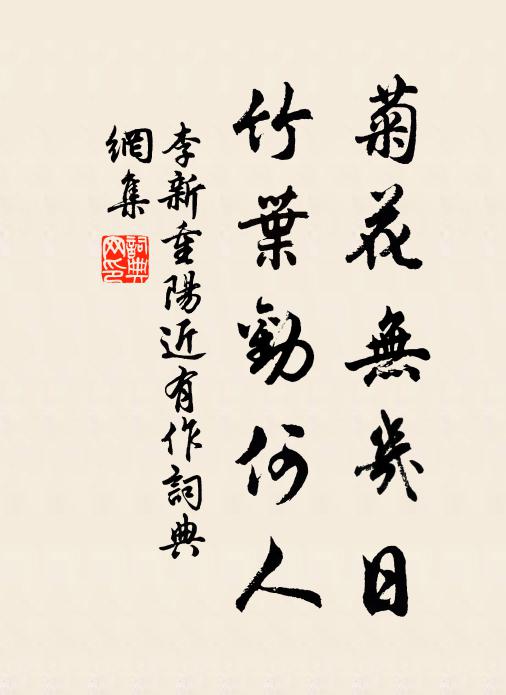 菊花無幾日
竹葉勸何人
李新重陽近有作詞典
網集
詞典
网印